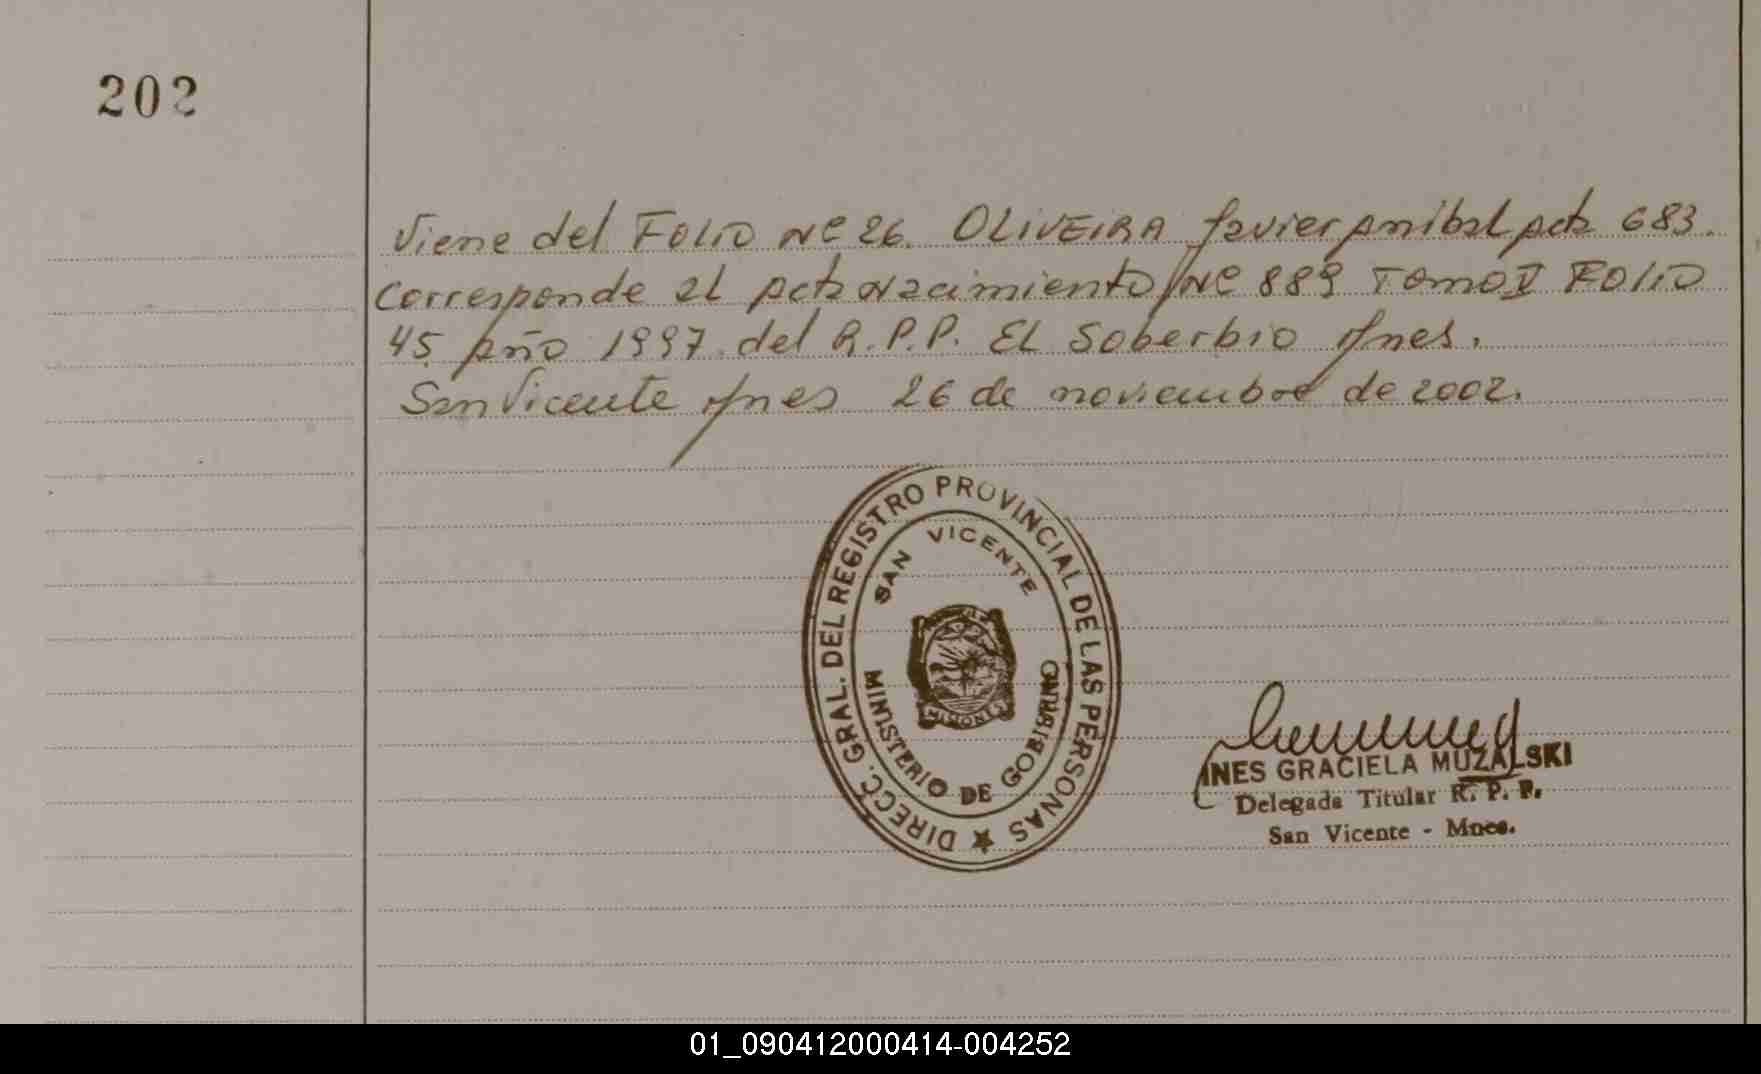 202
Viene del FOLIO Nº 26. OLIVEIRA Javier Anibal Acta 683.
Corresponde al Acta Nacimiento Nº 889 TOMO II FOLIO
45 Año 1997 del R.P.P. EL Soberbio Mnes.
San Vicente Mnes 26 de noviembre de 2002.
DIRECC. GRAL. DEL REGISTRO PROVINCIAL DE LAS PERSONAS
SAN VICENTE
MISIONES
MINISTERIO DE GOBIERNO
INES GRACIELA MUZALSKI
Delegada Titular R. P. P.
San Vicente - Mnes.
01_090412000414-004252